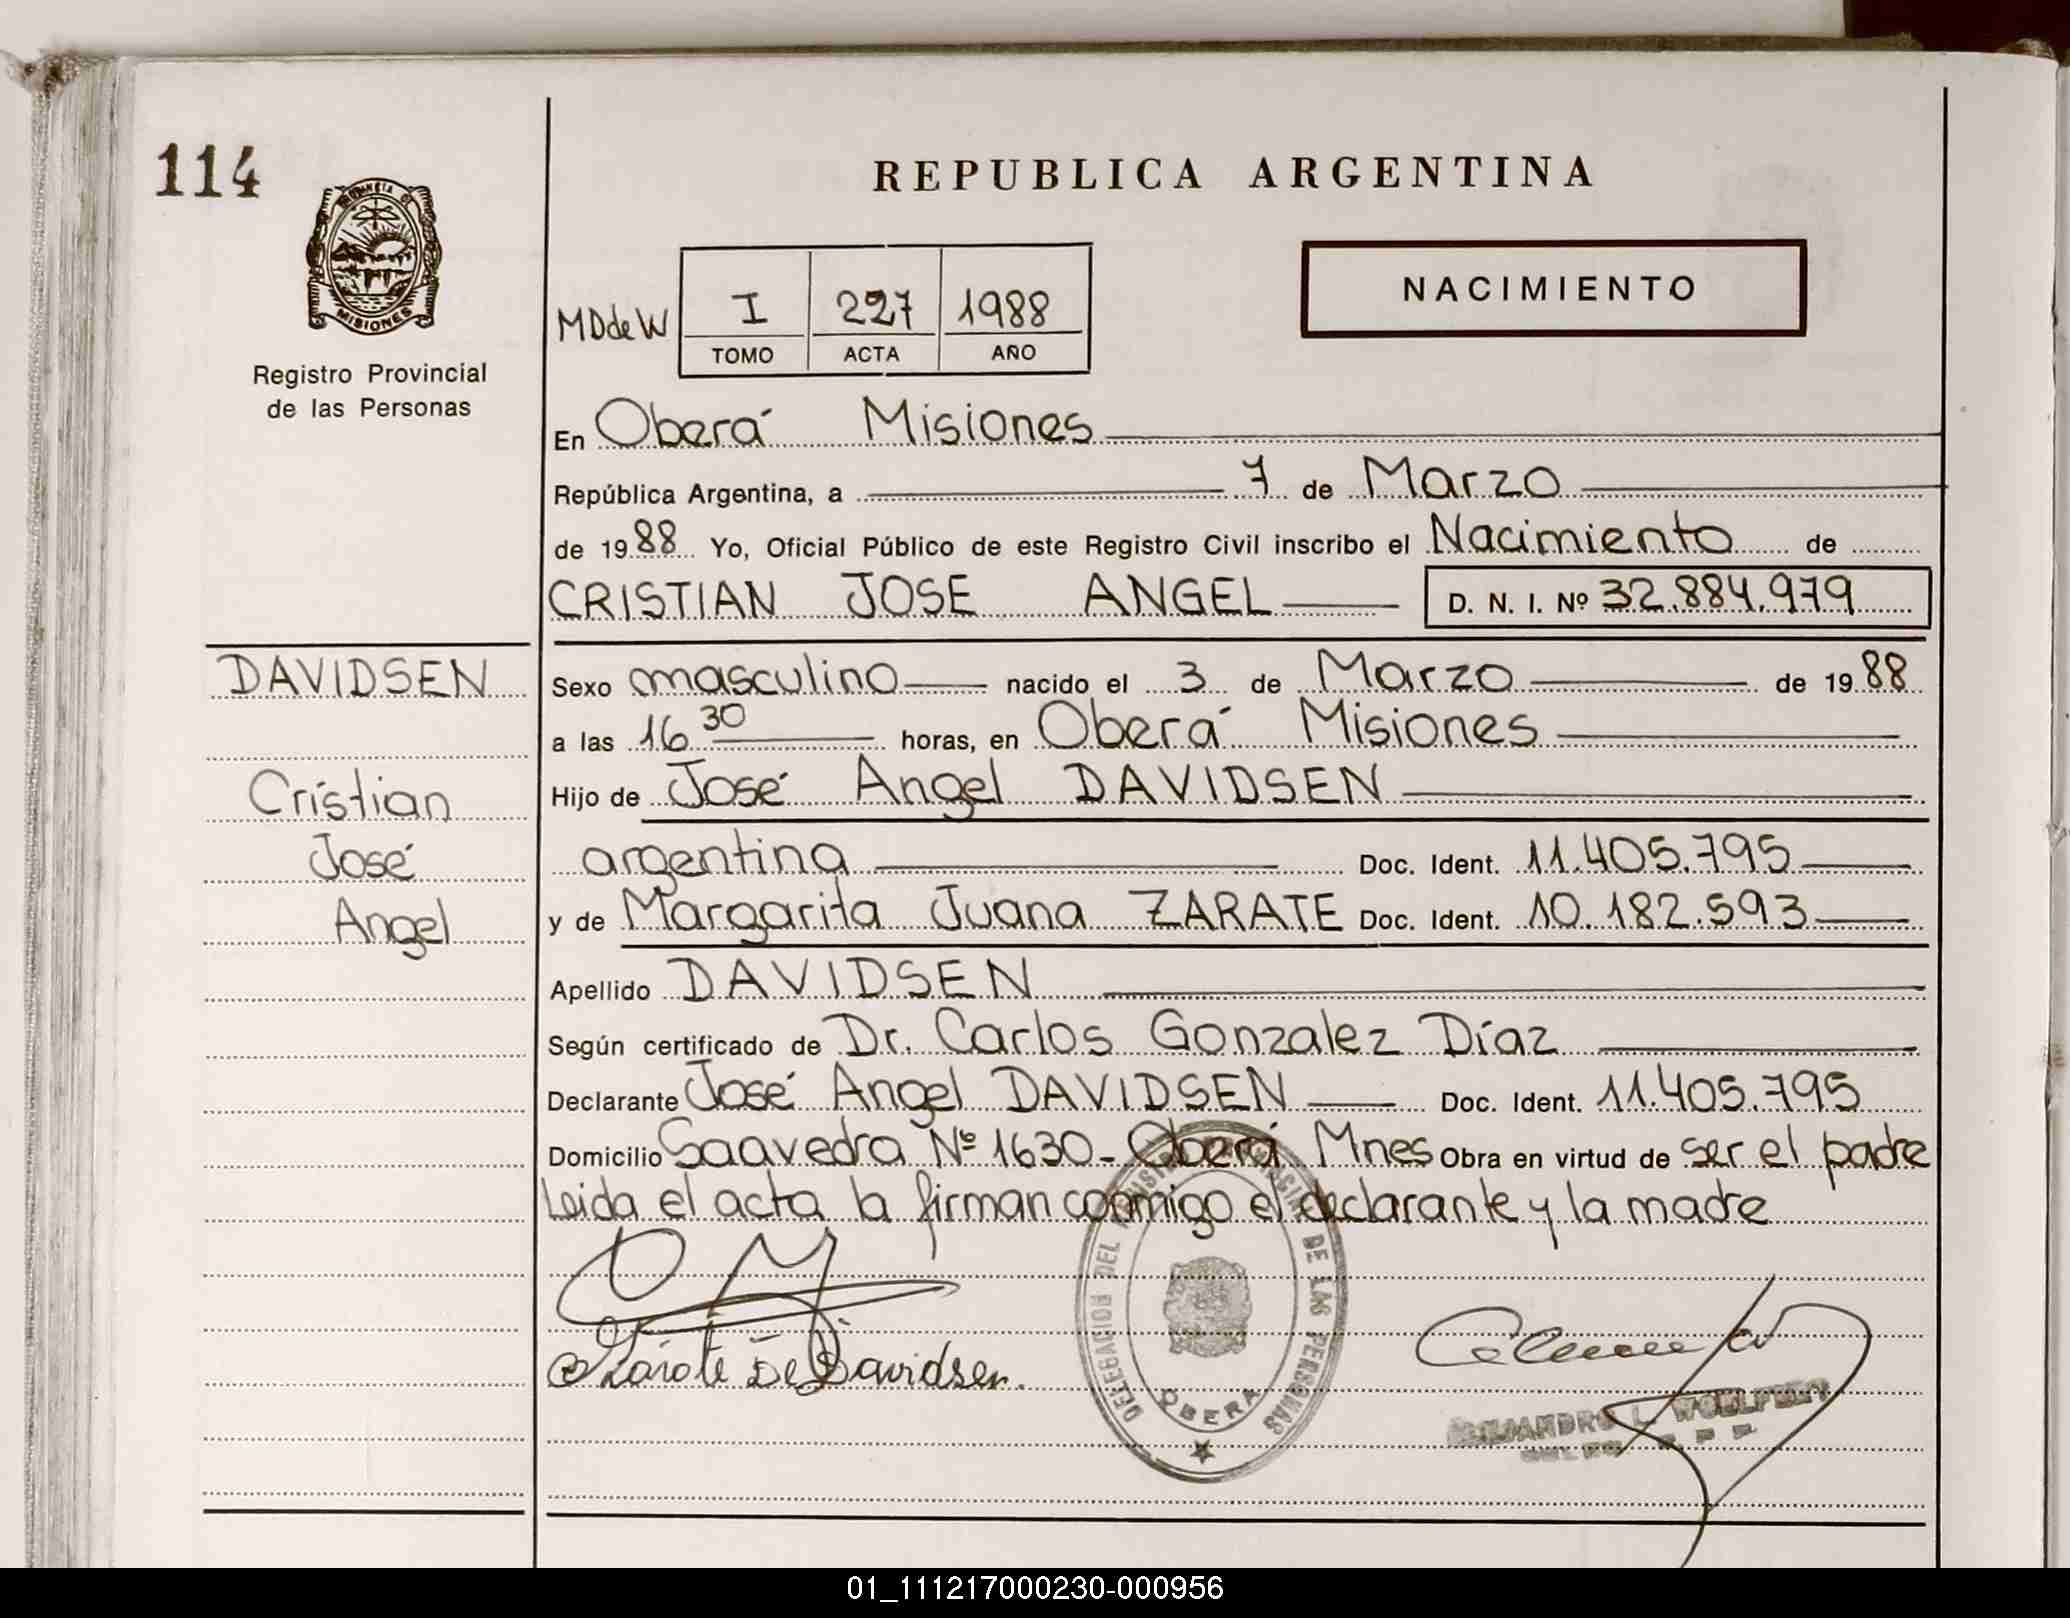 114
PROVINCIA DE
MISIONES
Registro Provincial
de las Personas
REPUBLICA ARGENTINA
NACIMIENTO
MDdeW I 227 1988
TOMO ACTA AÑO
En Oberá Misiones
República Argentina, a 7 de Marzo
de 1988 Yo, Oficial Público de este Registro Civil inscribo el Nacimiento de
CRISTIAN JOSE ANGEL D. N. I. Nº 32.884.979
DAVIDSEN
Cristian
José
Angel
Sexo masculino nacido el 3 de Marzo de 1988
a las 16 30 horas, en Oberá Misiones
Hijo de José Angel DAVIDSEN
argentina Doc. Ident. 11.405.795
y de Margarita Juana ZARATE Doc. Ident. 10.182.593
Apellido DAVIDSEN
Según certificado de Dr. Carlos Gonzalez Díaz
Declarante José Angel DAVIDSEN Doc. Ident. 11.405.795
Domicilio Saavedra Nº 1630- Oberá Mnes Obra en virtud de ser el padre
Leida el acta la firman conmigo el declarante y la madre
Zárate De Davidsen.
DELEGACION DEL REGISTRO DE LAS PERSONAS
OBERA
01_111217000230-000956